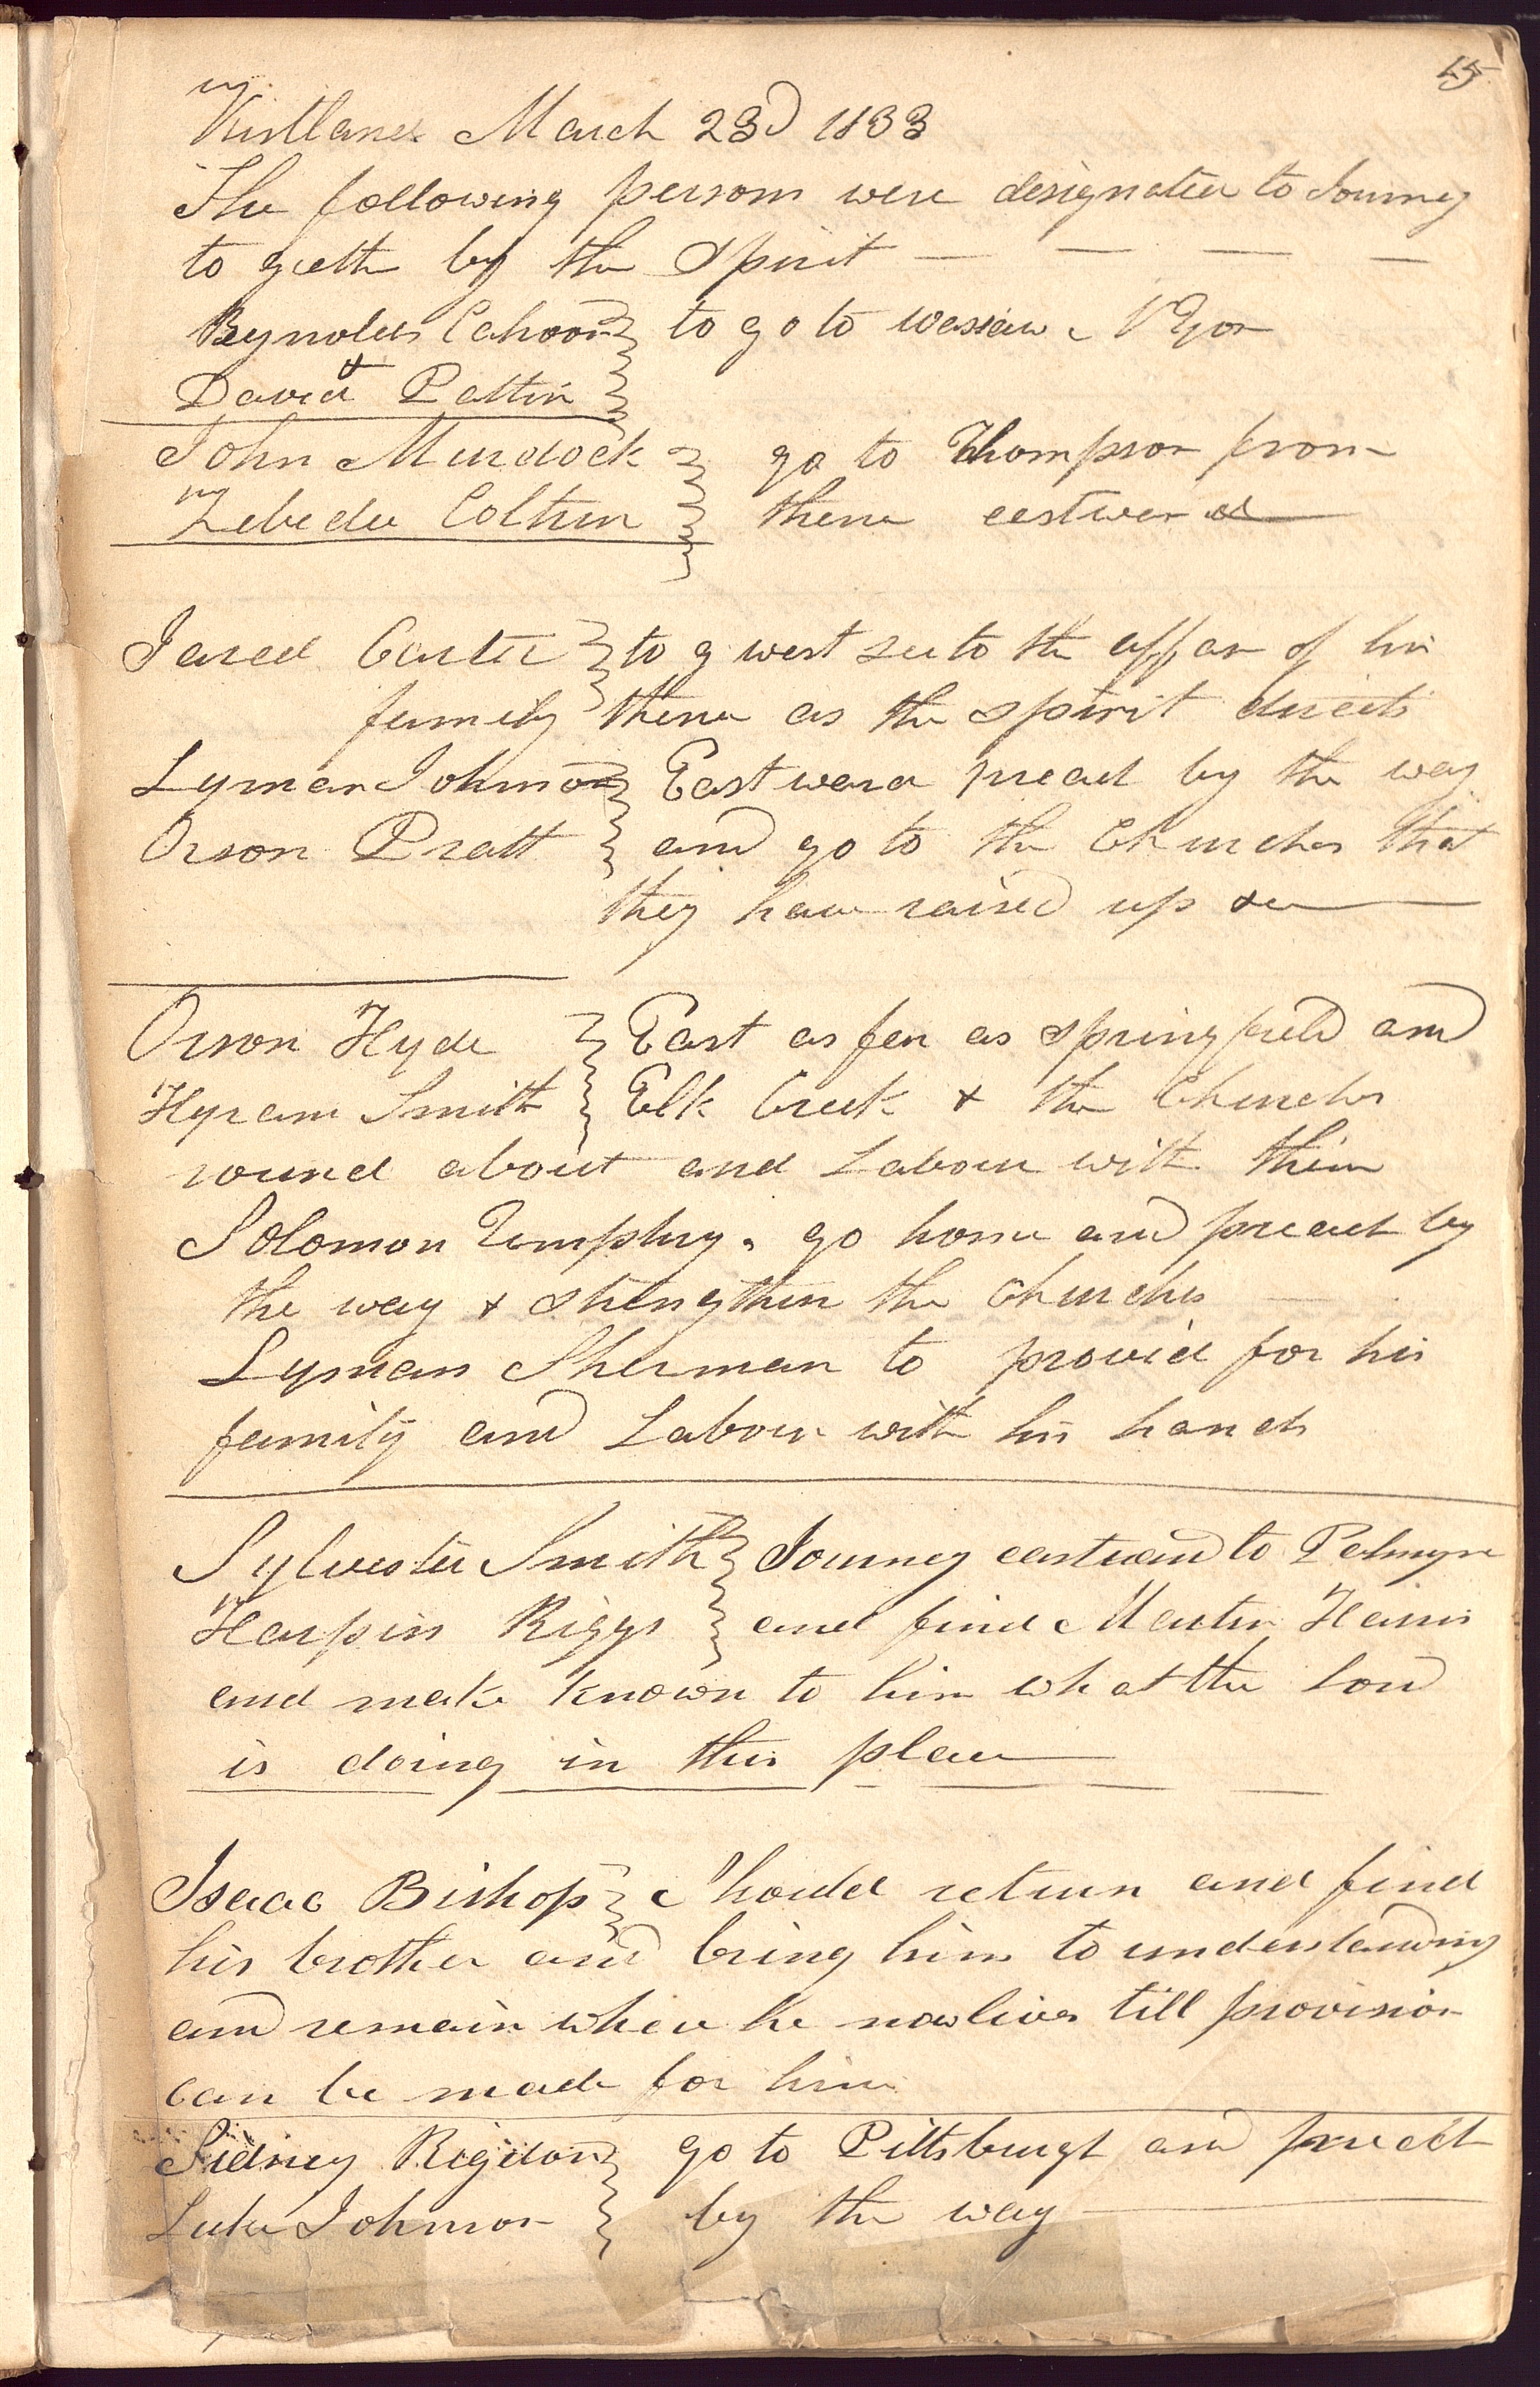 15
Kirtland March 23d 1833
The following persons were designated to Journey
to geeth by the Spirit
Reynolds Cahoon to go to N Y for
&
David Pattin
John Murdock go to Thompson from
Zebedee Coltrin thence eastward
Jared Carter to g west see to the affair of his
family thence as the spirit directs
Lyman Johnson Eastward preach by the way
Orson Pratt and go to the Churches that
they have raised up &c
Orson Hyde East as far as Springfield and
Hyram Smith Elk Creek & the Churches
round about and Labour with them
Solomon Umphry. go home and preach by
the way & strengthen the Churches
Lyman Sherman to provid for his
family and Labour with his hands
Sylvester Smith Journey eastward to Palmyra
Harpin Riggs and find Martin Harris
and make known to him what the Lord
is doing in this place
Isaac Bishop Should return and find
his brother and bring him to understanding
and remain where he now lives till provision
can be made for him
Sidney Rigdon go to Pittsburgh and preach
Luke Johnson by the way